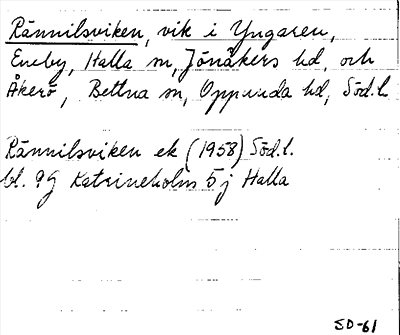 Rännilsviken, vik i Yngaren,
Eneby, Halla sn, Jönåkers hd, och
Åkerö, Bettna sn, Oppunda hd, Söd.l.
Rännilsviken ek (1958) Söd.l.
bl. 9G Katrineholm 5j Halla
SD-61